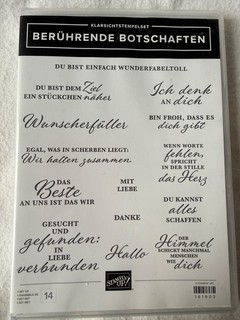 KLARSICHTSTEMPELSET
BERÜHRENDE BOTSCHAFTEN
DU BIST EINFACH WUNDERFABELTOLL
DU BIST DEM Ziel
EIN STÜCKCHEN näher
Ich denk
an dich
Wunscherfüller
BIN FROH, DASS ES
dich gibt
EGAL, WAS IN SCHERBEN LIEGT:
Wir halten zusammen.
WENN WORTE
fehlen,
SPRICHT
IN DER STILLE
das Herz
DAS
Beste
AN UNS IST DAS WIR
MIT
LIEBE
DU KANNST
alles
SCHAFFEN
DANKE
GESUCHT
UND
gefunden:
IN
LIEBE
verbunden
Hallo
DER
Himmel
SCHICKT MANCHMAL
MENSCHEN
WIE dich
14
STAMPIN' UP!